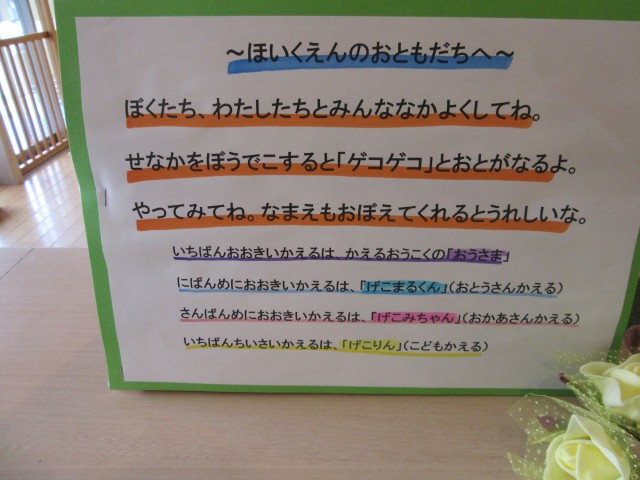 ～ほいくえんのおともだちへ～
ぼくたち、わたしたちとみんななかよくしてね。
せなかをぼうでこすると「ゲコゲコ」とおとがなるよ。
やってみてね。なまえもおぼえてくれるとうれしいな。
いちばんおおきいかえるは、かえるおうこくの「おうさま」
にばんめにおおきいかえるは、「げこまるくん」（おとうさんかえる）
さんばんめにおおきいかえるは、「げこみちゃん」（おかあさんかえる）
いちばんちいさいかえるは、「げこりん」（こどもかえる）